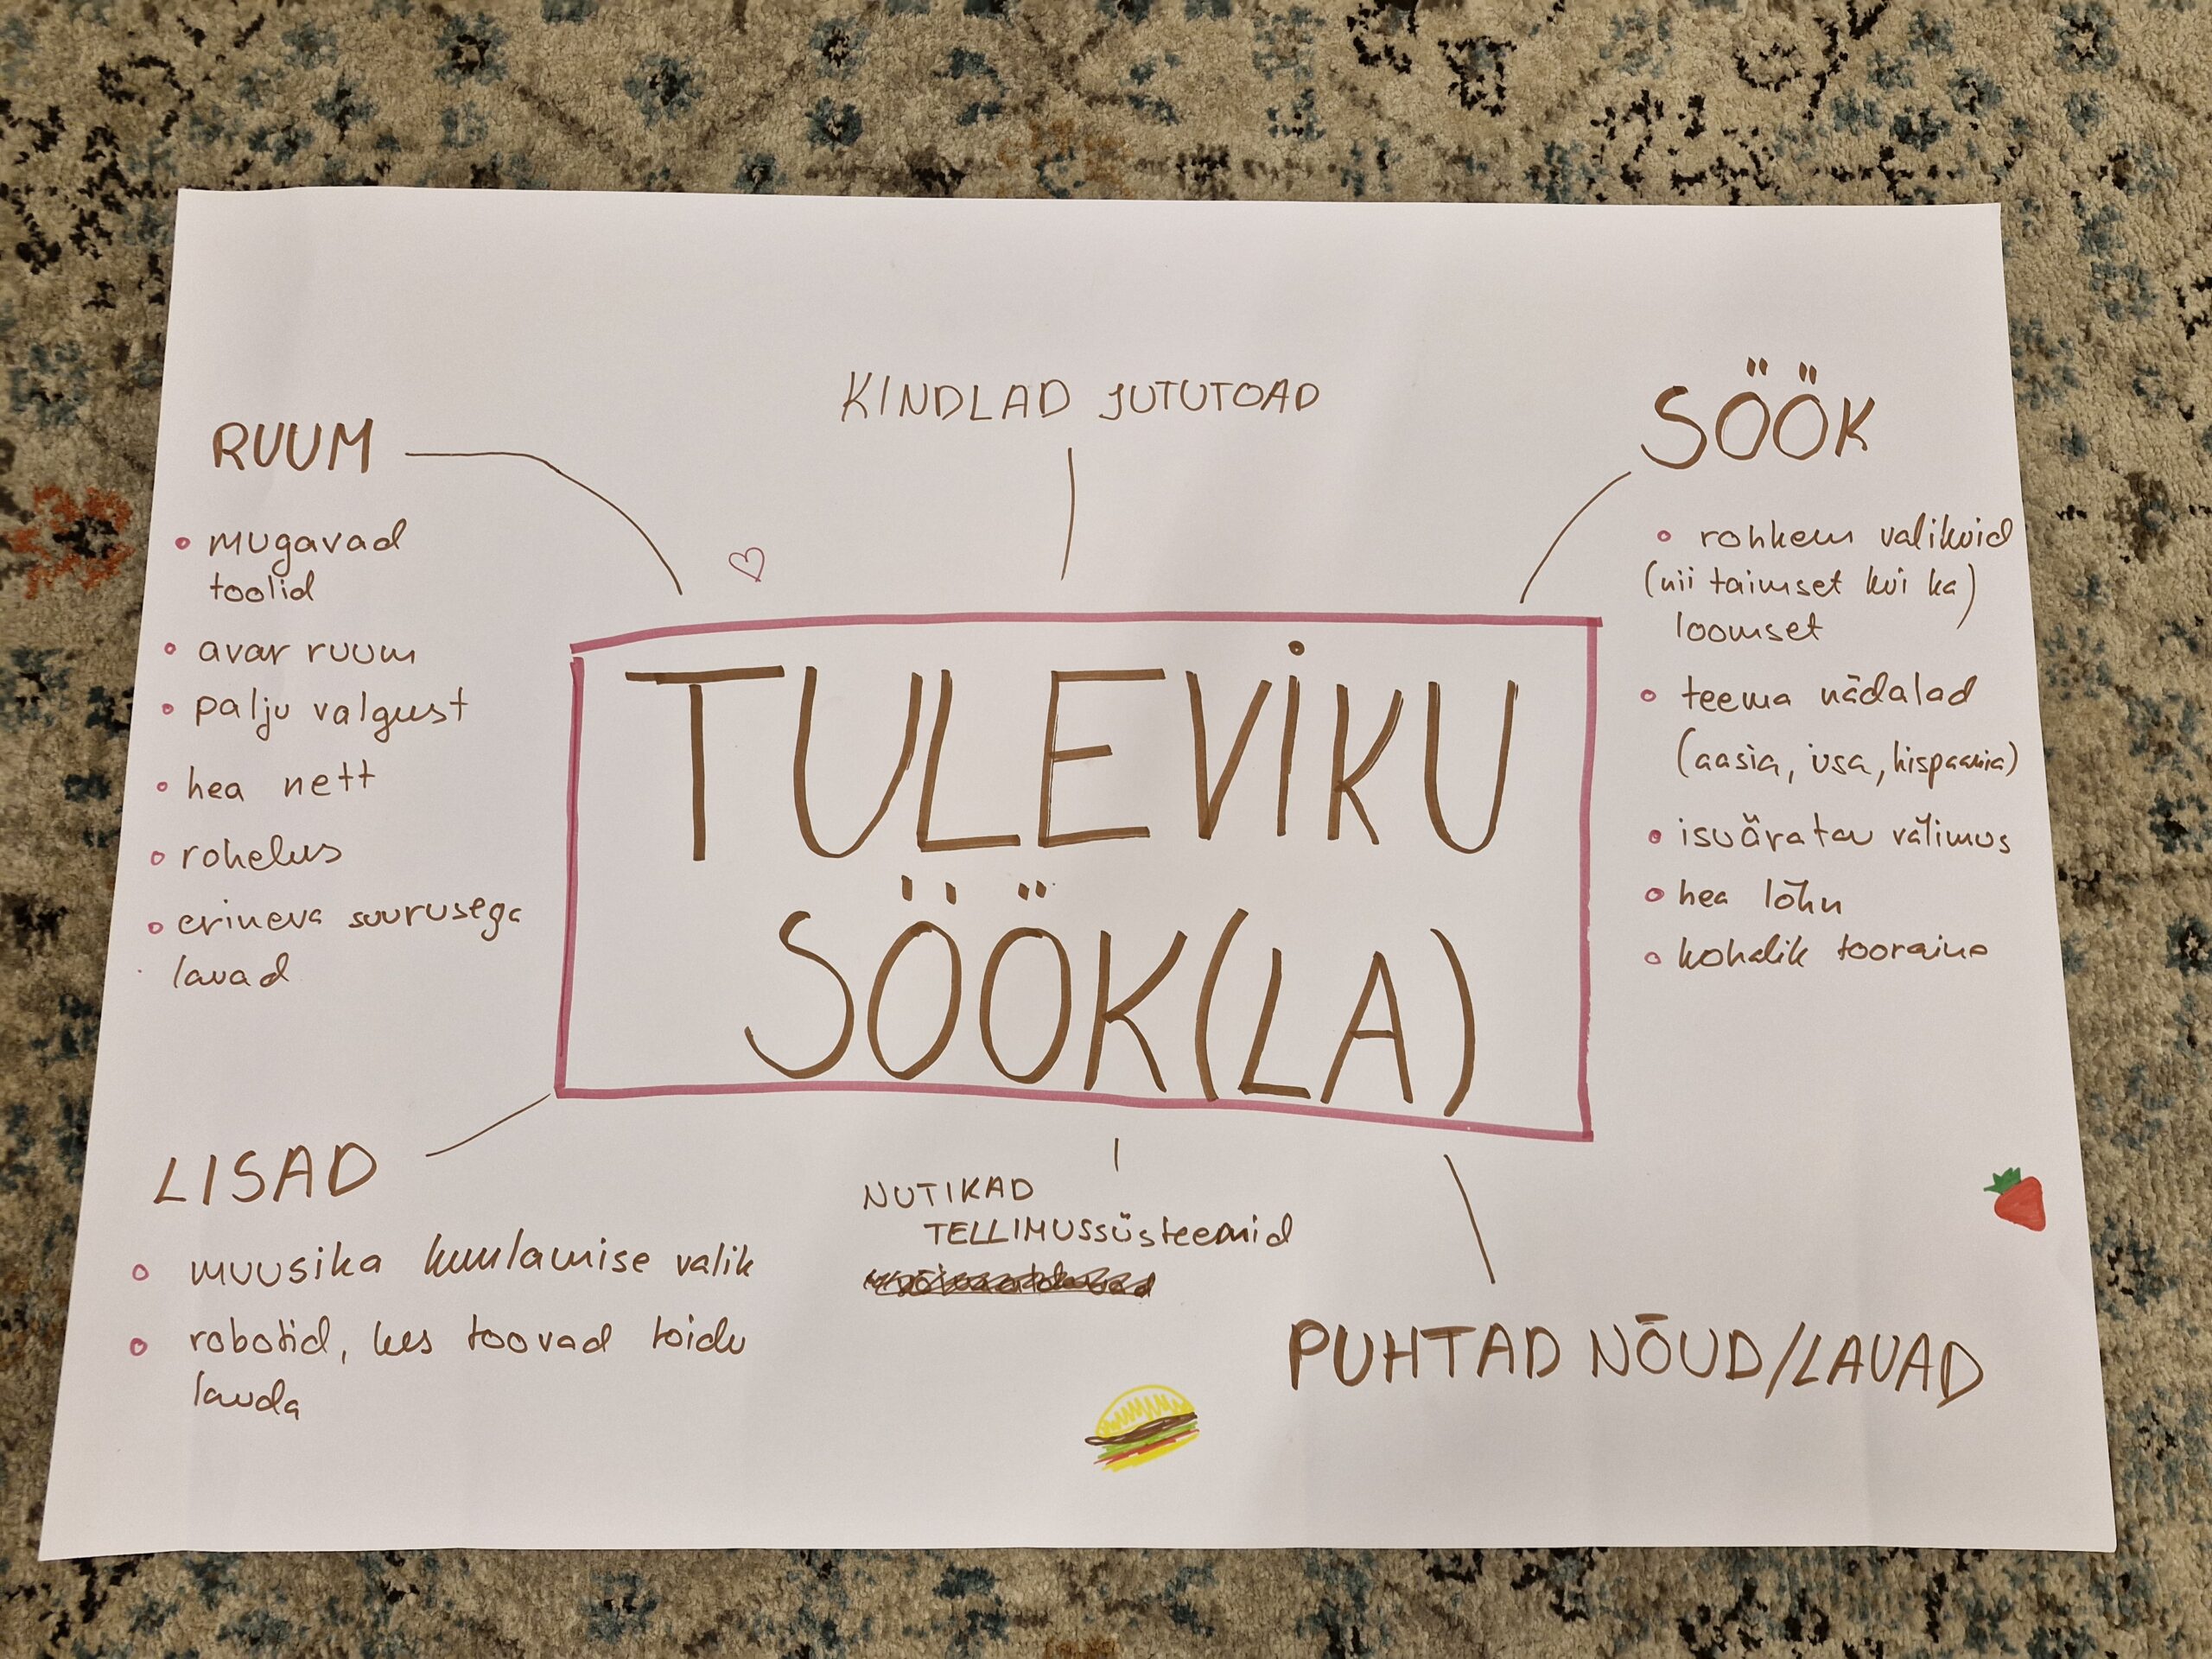 KINDLAD JUTUTOAD
RUUM
mugavad
toolid
avar ruum
palju valgust
hea nett
rohelus
erineva suurusega
lauad
SÖÖK
rohkem valikuid
(nii taimset kui ka)
loomset
teema nädalad
(aasia, usa, hispaania)
isuäratav välimus
hea lõhn
kohalik tooraine
TULEVIKU
SÖÖK(LA)
LISAD
muusika kuulamise valik
robotid, kes toovad toidu
lauda
NUTIKAD
TELLIMUSSÜsteemid
PUHTAD NÕUD/LAUAD